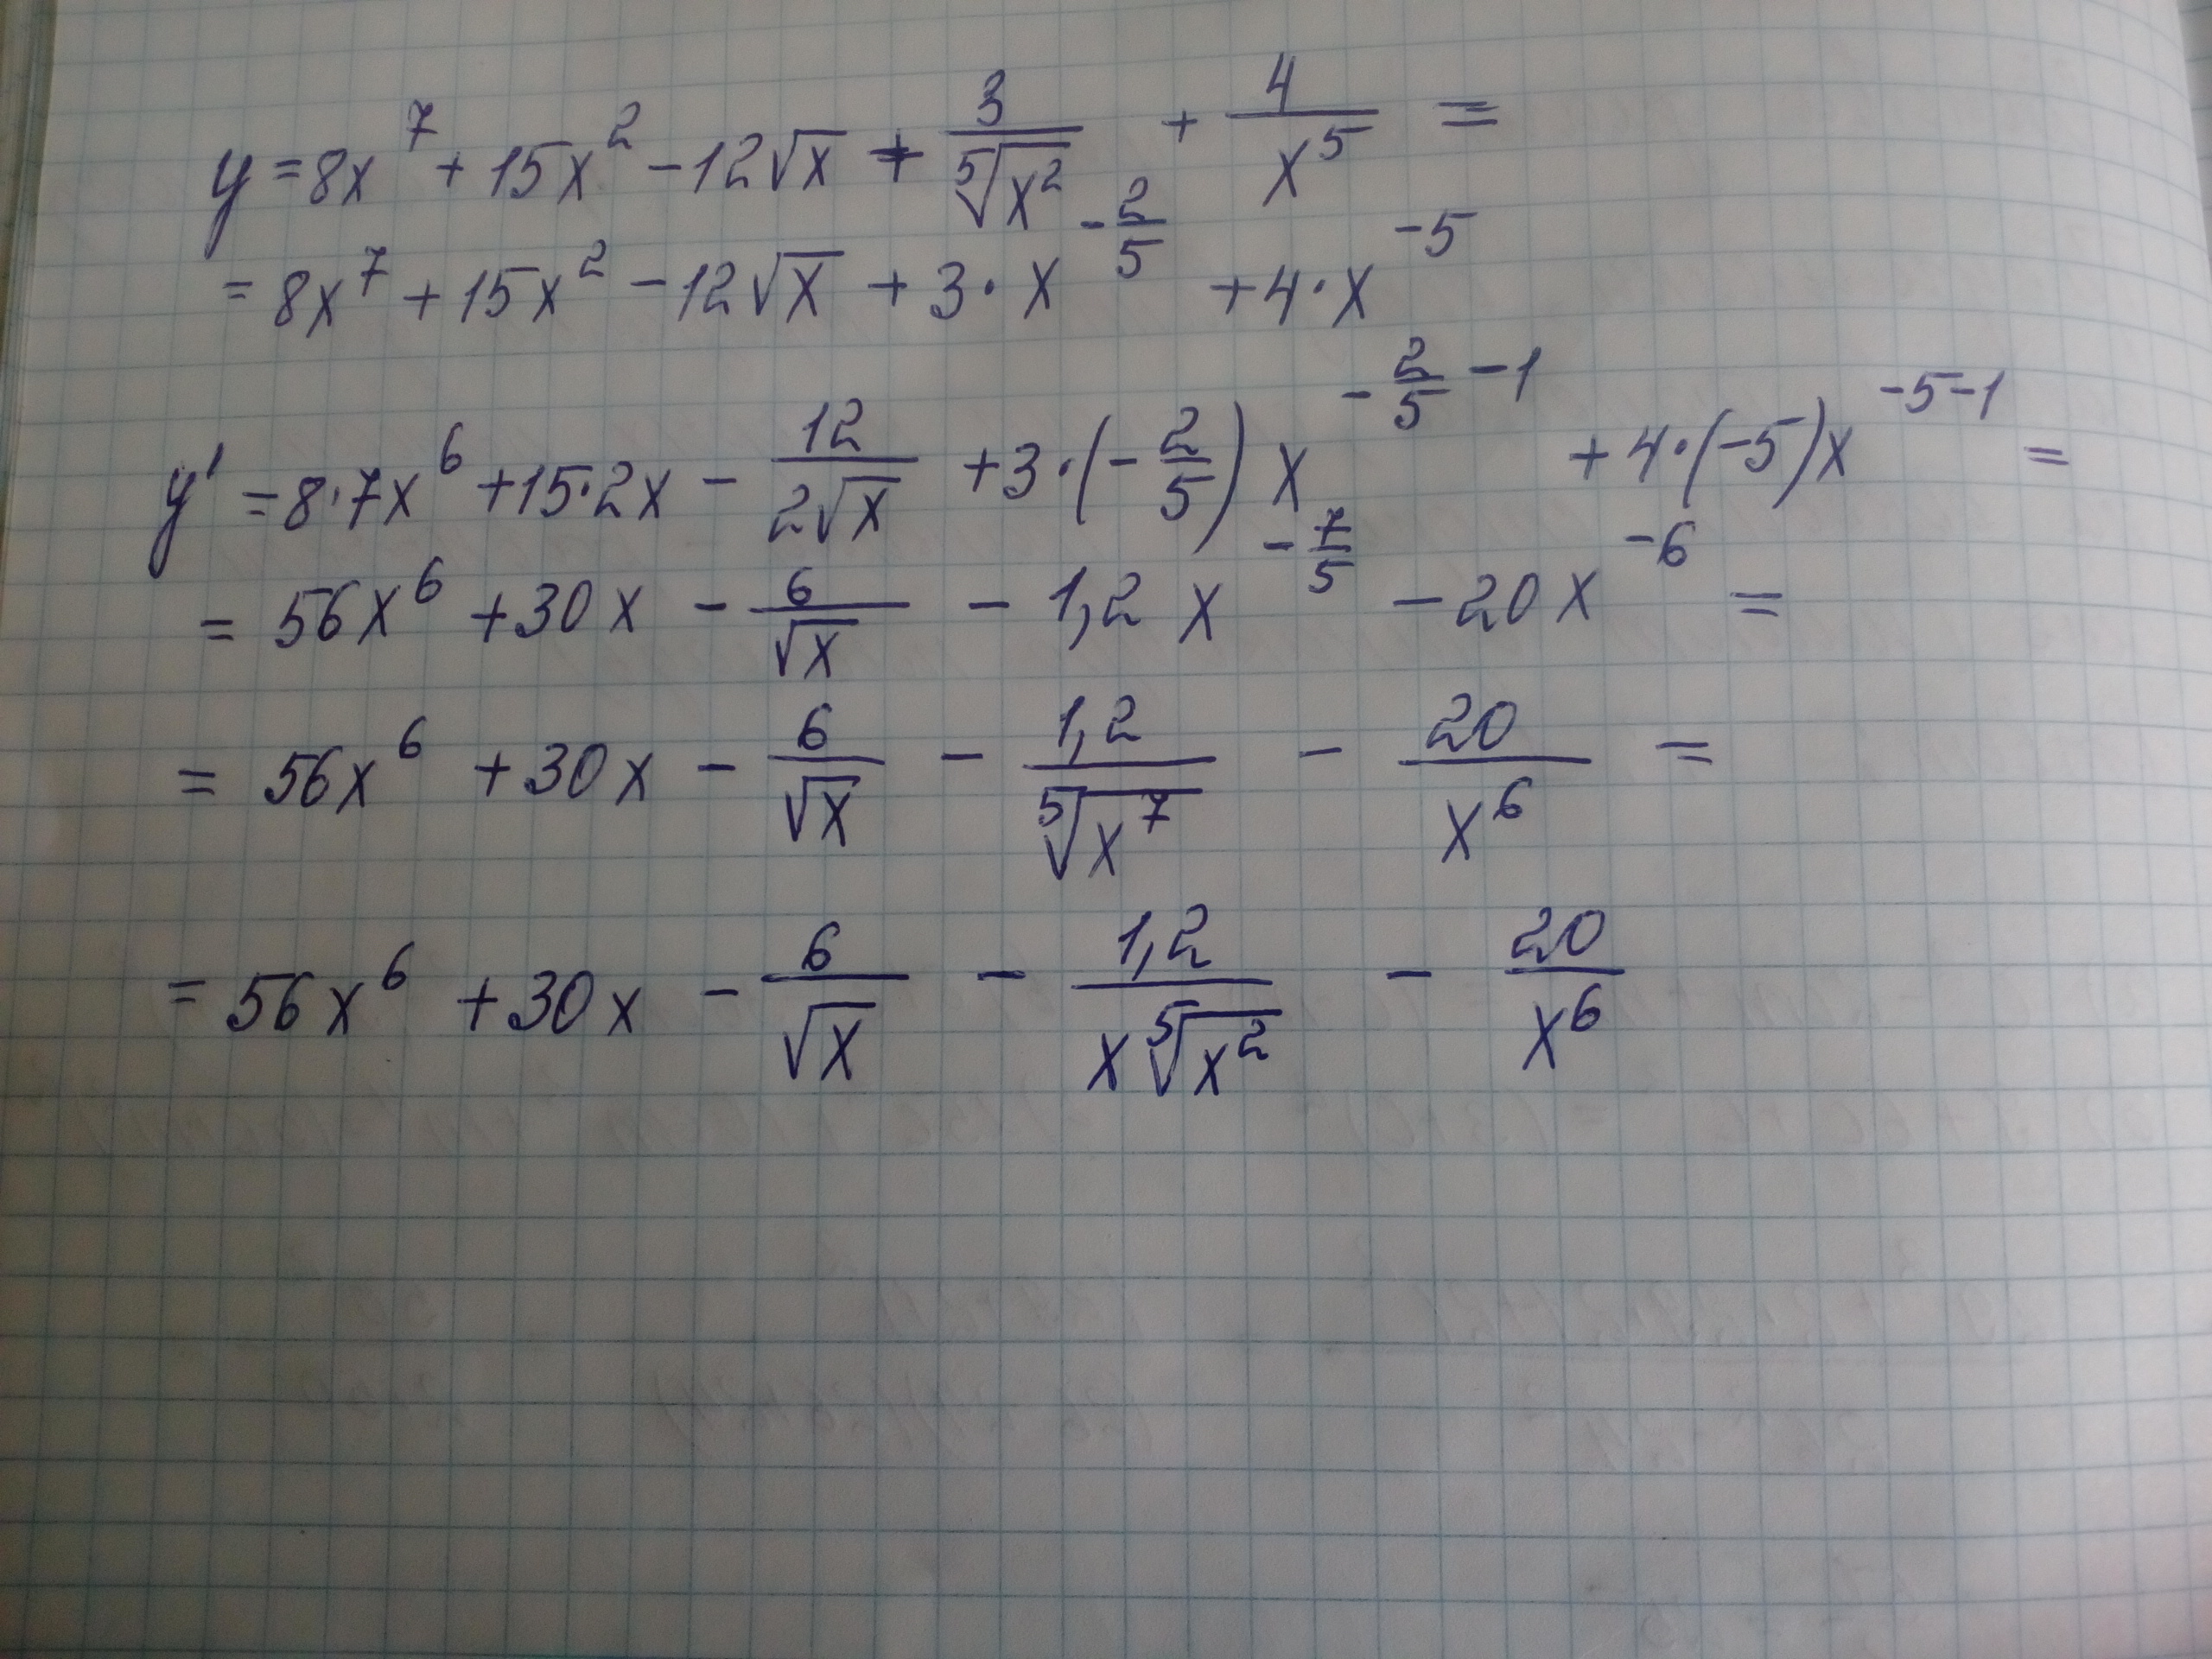 y = 8x⁷ + 15x² − 12√x + 3/⁵√x² + 4/x⁵ =
= 8x⁷ + 15x² − 12√x + 3·x^(−2/5) + 4·x⁻⁵
y' = 8·7x⁶ + 15·2x − 12/2√x + 3·(−2/5)x^(−2/5−1) + 4·(−5)x⁻⁵⁻¹ =
= 56x⁶ + 30x − 6/√x − 1,2x^(−7/5) − 20x⁻⁶ =
= 56x⁶ + 30x − 6/√x − 1,2/⁵√x⁷ − 20/x⁶ =
= 56x⁶ + 30x − 6/√x − 1,2/x⁵√x² − 20/x⁶